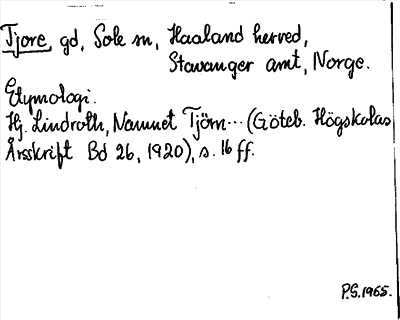 Tjore, gd, Sole sn, Haaland herred,
Stavanger amt, Norge.
Etymologi.
Hj. Lindroth, Namnet Tjörn... (Göteb. Högskolas
Årsskrift Bd 26, 1920), s. 16 ff.
P.G. 1965.